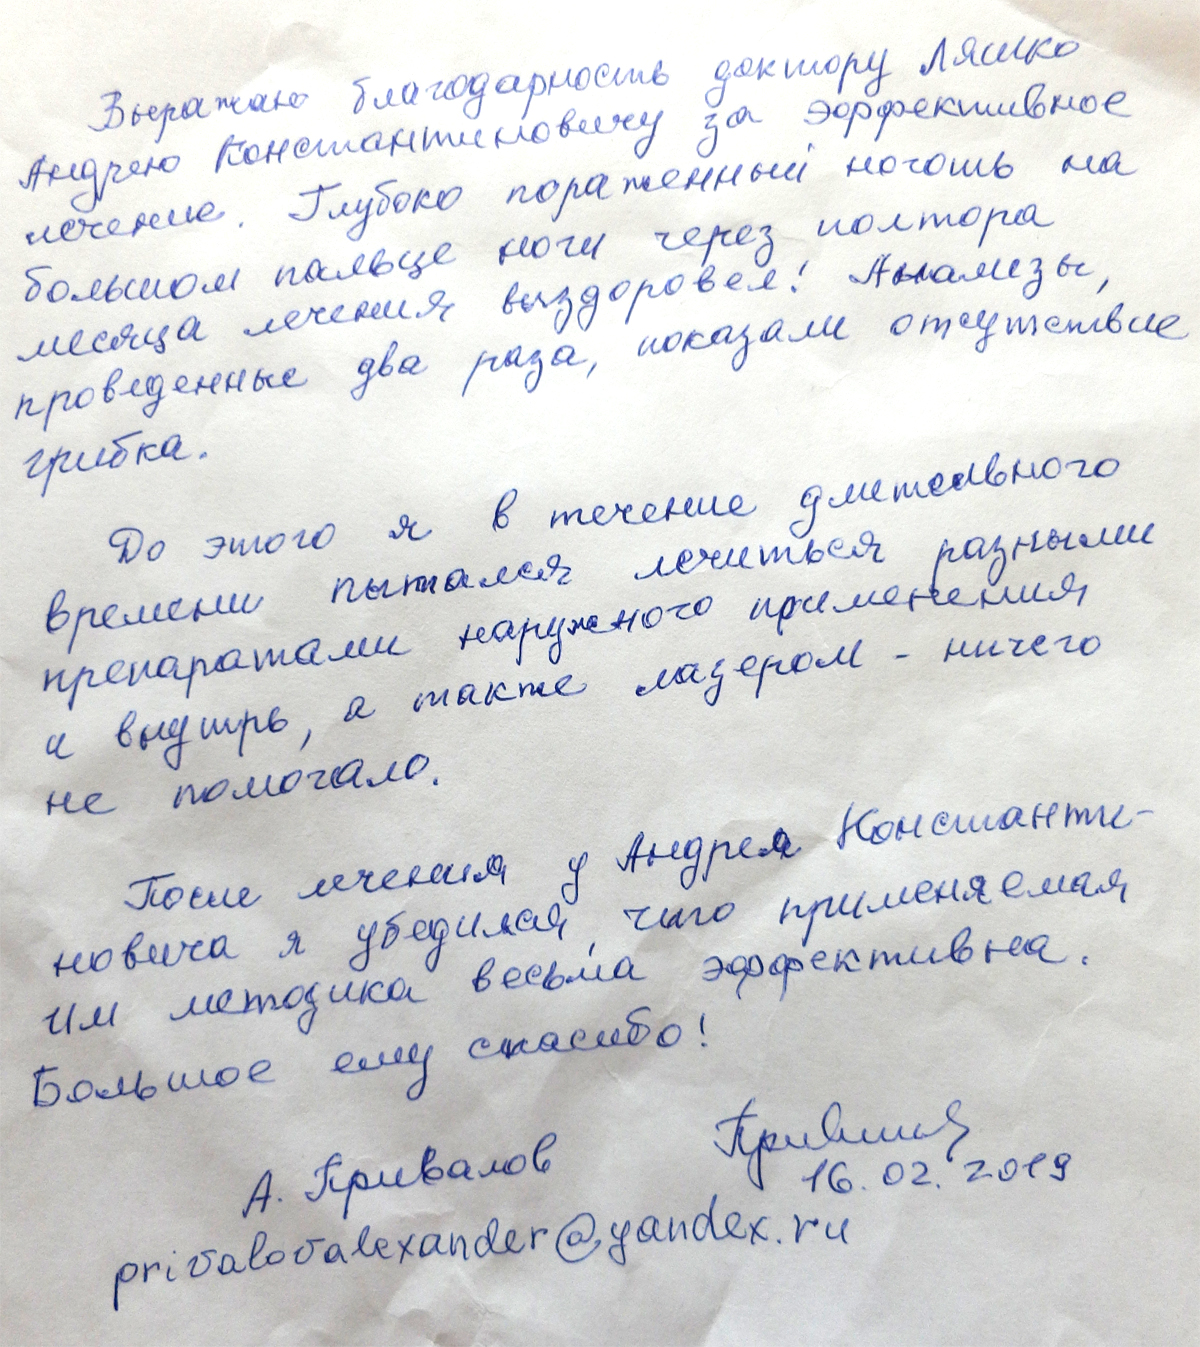 Выражаю благодарность доктору Ляшко
Андрею Константиновичу за эффективное
лечение. Глубоко пораженный ноготь на
большом пальце ноги через полтора
месяца лечения выздоровел! Анализы,
проведенные два раза, показали отсутствие
грибка.
До этого я в течение длительного
времени пытался лечиться разными
препаратами наружного применения
и внутрь, а также лазером - ничего
не помогало.
После лечения у Андрея Константи-
новича я убедился, что применяемая
им методика весьма эффективна.
Большое ему спасибо!
А. Привалов
16.02.2019
privalovalexander@yandex.ru